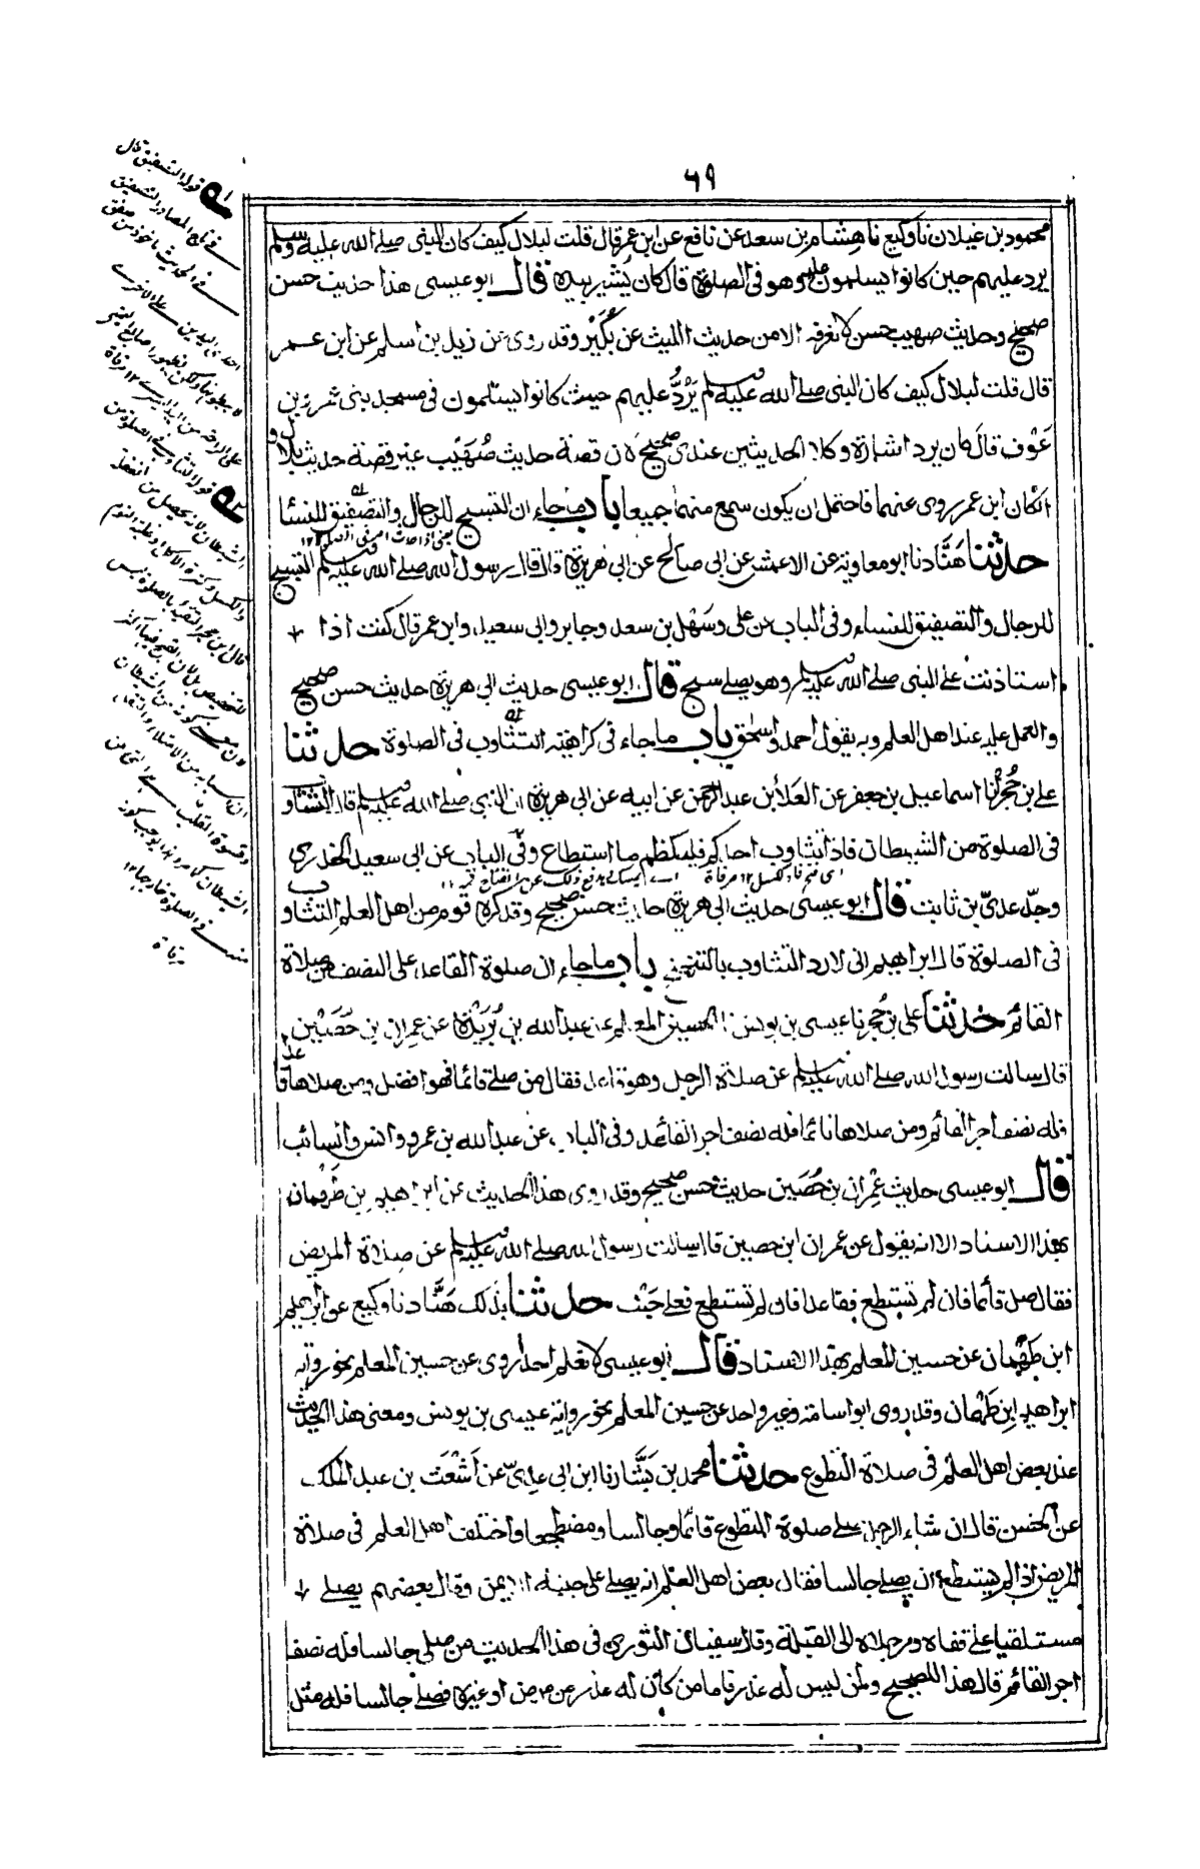 ٦٩
محمود بن غيلان نا وكيع نا هشام بن سعد عن نافع عن ابن عمر قال قلت لبلال كيف كان النبى صلے الله عليه وسلم
يرد عليهم حين كانوا يسلمون عليه وهو فى الصلوة قال كان يُشير بيده قال ابو عيسى هذا حديث حسن
صحيح وحديث صهيب حسن لا نعرفه الا من حديث الليث عن بُكَيْر وقد روى عن زيد بن اسلم عن ابن عمر
قال قلت لبلال كيف كان النبى صلے الله عليه وسلم يَرُدُّ عليهم حيث كانوا يسلمون فى مسجد بنى عمرو بن
عَوْف قال كان يرد اشارة وكلا الحديثين عندى صحيح لان قصة حديث صُهَيْب غير قصة حديث بلال و
ان كان ابن عمر روى عنهما فاحتمل ان يكون سمع منهما جميعا باب ما جاء ان التسبيح للرجال والتصفيق للنساء
حدثنا هَنَّاد نا ابو معاوية عن الاعمش عن ابى صالح عن ابى هريرة قال قال رسول الله صلے الله عليه وسلم التسبيح
للرجال والتصفيق للنساء وفى الباب عن على وسَهْل بن سعد وجابر وابى سعيد وابن عمر قال كنت اذا
استاذنت على النبى صلے الله عليه وسلم وهو يصلے سبح قال ابو عيسى حديث ابى هريرة حديث حسن صحيح
والعمل عليه عند اهل العلم وبه يقول احمد واسحق باب ما جاء فى كراهية التثاوب فى الصلوة حدثنا
على بن حُجْر نا اسماعيل بن جعفر عن العلاء بن عبد الرحمن عن ابيه عن ابى هريرة ان النبي صلے الله عليه وسلم قال التثاوب
فى الصلوة من الشيطان فاذا تثاوب احدكم فليكظم ما استطاع وفى الباب عن ابى سعيد الخدرى
وجد عدىّ بن ثابت قال ابو عيسى حديث ابى هريرة حديث حسن صحيح وقد كره قوم من اهل العلم التثاوب
فى الصلوة قال ابراهيم انى لارد التثاوب بالتنحنح باب ما جاء ان صلوة القاعد على النصف من صلاة
القائم حدثنا على بن حُجر نا عيسى بن يونس نا الحسين المعلم عن عبد الله بن بُرَيْدَة عن عمران بن حُصَيْن
قال سالت رسول الله صلے الله عليه وسلم عن صلاة الرجل وهو قاعد فقال من صلے قائما فهو افضل ومن صلاها قاعدا
فله نصف اجر القائم ومن صلاها نائما فله نصف اجر القاعد وفى الباب عن عبد الله بن عمرو وانس والسائب
قال ابو عيسى حديث عِمْران بن حُصَين حديث حسن صحيح وقد روى هذا الحديث عن ابراهيم بن طَهْمان
بهذا الاسناد الا انه يقول عن عمران ابن حصين قال سالت رسول الله صلے الله عليه وسلم عن صلاة المريض
فقال صل قائما فان لم تستطع فقاعدا فان لم تستطع فعلى جَنْب حدثنا بذلك هَنَّاد نا وكيع عن ابراهيم
ابن طَهْمان عن حسين المعلم بهذا الاسناد قال ابو عيسى لا نعلم احدا روى عن حسين المعلم نحو رواية
ابراهيم ابن طَهْمان وقد روى ابو اسامة وغير واحد عن حسين المعلم نحو رواية عيسى بن يونس ومعنى هذا الحديث
عند بعض اهل العلم فى صلاة التطوع حدثنا محمد بن بَشَّار نا ابن ابى عدىّ عن اَشْعَث بن عبد الملك
عن الحسن قال ان شاء الرجل صلے صلوة التطوع قائما وجالسا ومضطجعا واختلف اهل العلم فى صلاة
المريض اذا لم يستطع ان يصلے جالسا فقال بعض اهل العلم انه يصلے على جنبه الايمن وقال بعضهم يصلے
مستلقيا على قفاه ورجلاه الى القبلة وقال سفيان الثورى فى هذا الحديث من صلى جالسا فله نصف
اجر القائم قال هذا للصحيح ولمن ليس له عذر فاما من كان له عذر من مرض او غيره فصلے جالسا فله مثل
قوله التصفيق قال
فى تاج المصادر التصفيق
قوله التثاوب فى الصلوة من
الشيطان